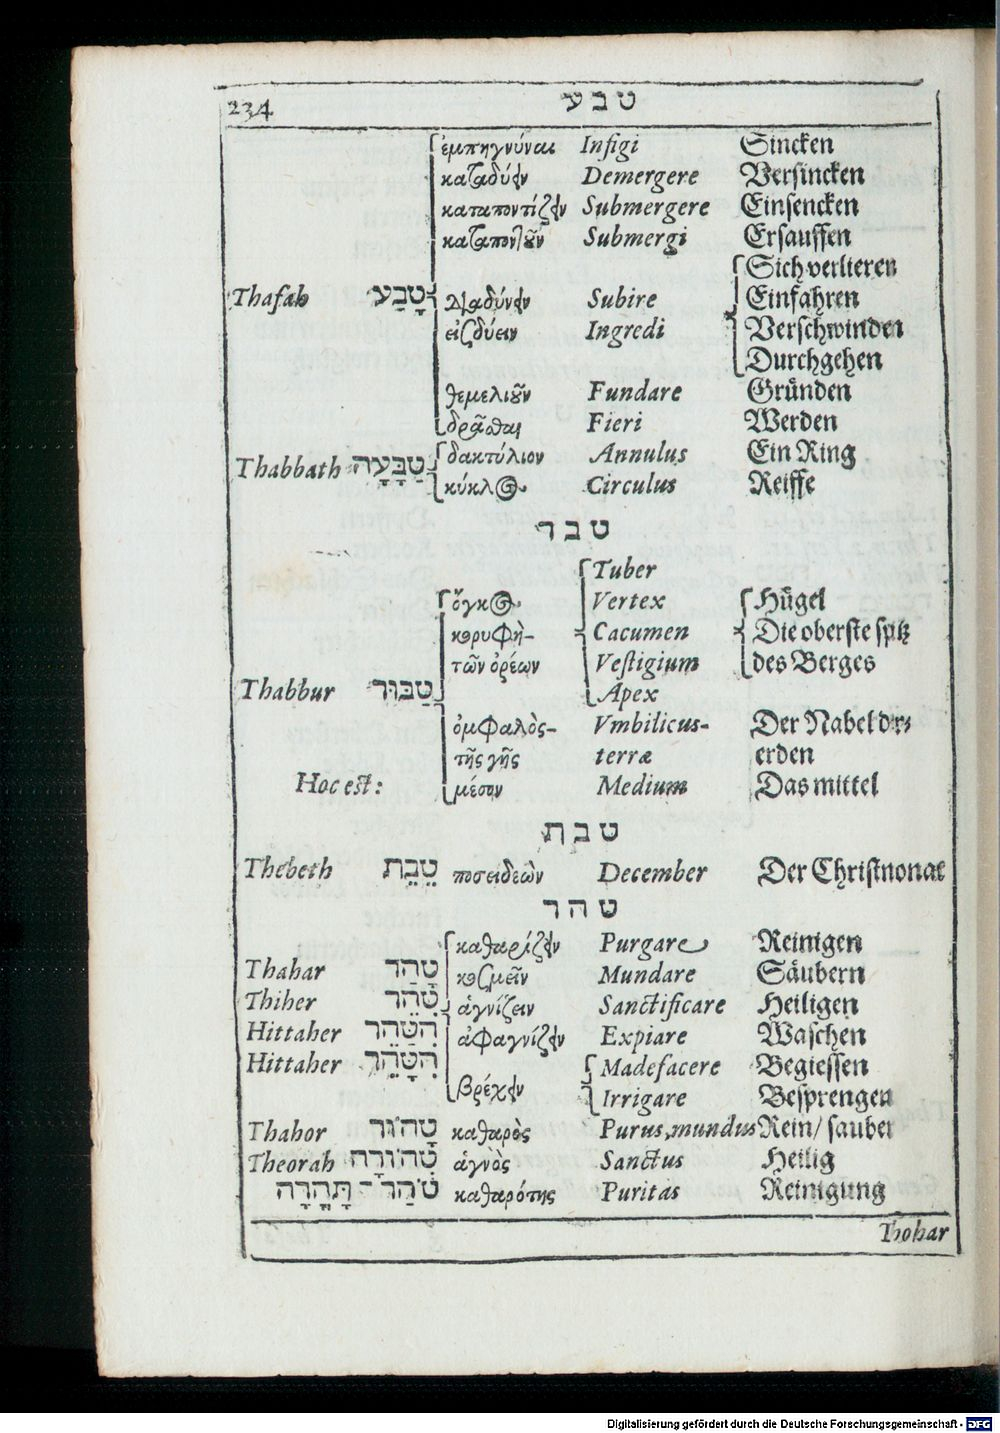 234 טבע
ἐμπηγνύναι Infigi Sincken
καταδύειν Demergere Versincken
καταποντίζειν Submergere Einsencken
καταποντοῦν Submergi Ersauffen
Sich verlieren
Thafah טָבַע διαδύνειν Subire Einfahren
εἰςδύειν Ingredi Verschwinden
Durchgehen
θεμελιοῦν Fundare Gründen
δρᾶσθαι Fieri Werden
δακτύλιον Annulus Ein Ring
Thabbath טַבָּעָה
κύκλος Circulus Reiffe
טבר
Tuber
ὄγκος Vertex Hügel
κορυφὴ- Cacumen Die oberste spitz
τῶν ὀρέων Vestigium des Berges
Thabbur טַבּוּר Apex
ὀμφαλὸς- Vmbilicus- Der Nabel der
τῆς γῆς terræ erden
Hoc est: μέσον Medium Das mittel
טבת
Thebeth טֵבֵת ποσειδεὼν December Der Christmonat
טהר
καθαρίζειν Purgare Reinigen
Thahar טָהַר κοσμεῖν Mundare Säubern
Thiher טִהֵר ἁγνίζειν Sanctificare Heiligen
Hittaher הִטַּהֵר ἀφαγνίζειν Expiare Waschen
Hittaher הִטָּהֵר Madefacere Begiessen
βρέχειν Irrigare Besprengen
Thahor טָהוֹר καθαρὸς Purus, mundus Rein/ sauber
Theorah טְהוֹרָה ἁγνὸς Sanctus Heilig
טֹהַר־ טָהֳרָה καθαρότης Puritas Reinigung
Thohar
Digitalisierung gefördert durch die Deutsche Forschungsgemeinschaft - DFG